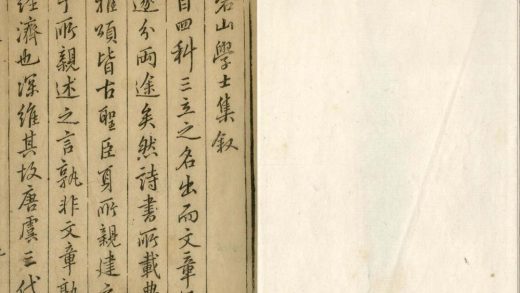 山學士集叙
自四科三立之名出而文章
遂分兩途矣然詩書所載典
雅頌皆古聖臣頁所親建
所親述之言孰非文章
經濟也深維其故唐虞三代